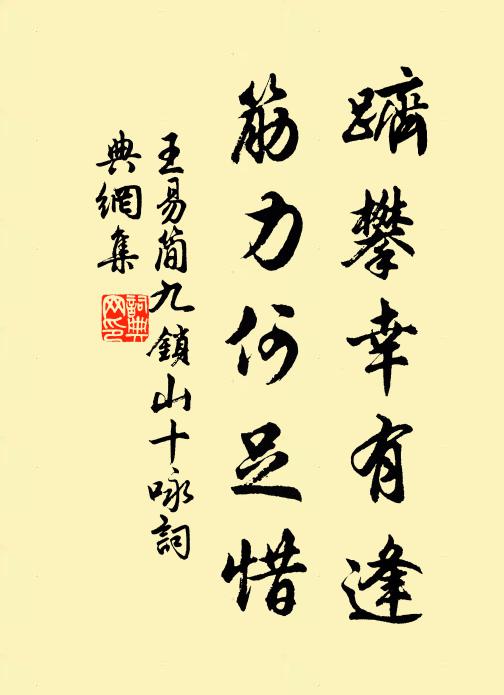 躋攀幸有逢
筋力何足惜
王易简九鎖山十咏詞
典網集
詞典網印